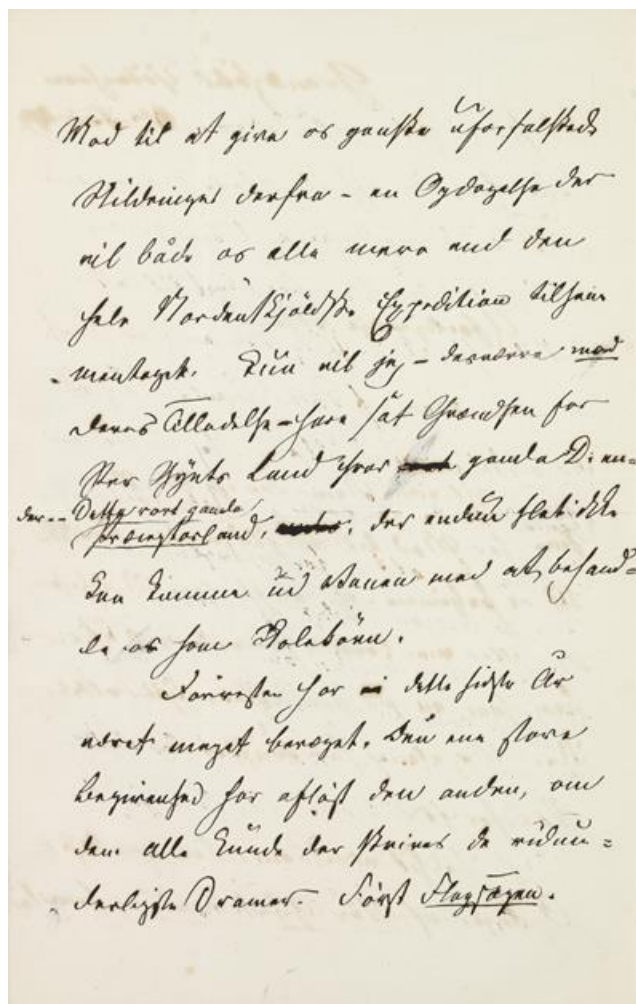 Mod til at give os ganske uforfalskede
Skildringer derfra – en Opdagelse der
vil både os alle mere end den
hele Nordenskjöldske Expedition tilsam-
mentagen. Kun vil jeg – desværre med
Deres Tilladelse – have sat Grændsen for
Per Gynts Land hvor gamle D. en-
der -- Dette vort gamle
Præstorland, der endnu slet ikke
kan komme ud af Vanen med at behand-
le os som Skolebörn.
Forresten har vi dette sidste År
været meget bevæget. Den ene store
Begivenhed har aflöst den anden, om
dem alle kunde der skrives de vidun-
derligste Dramer. Först Flagsagen.